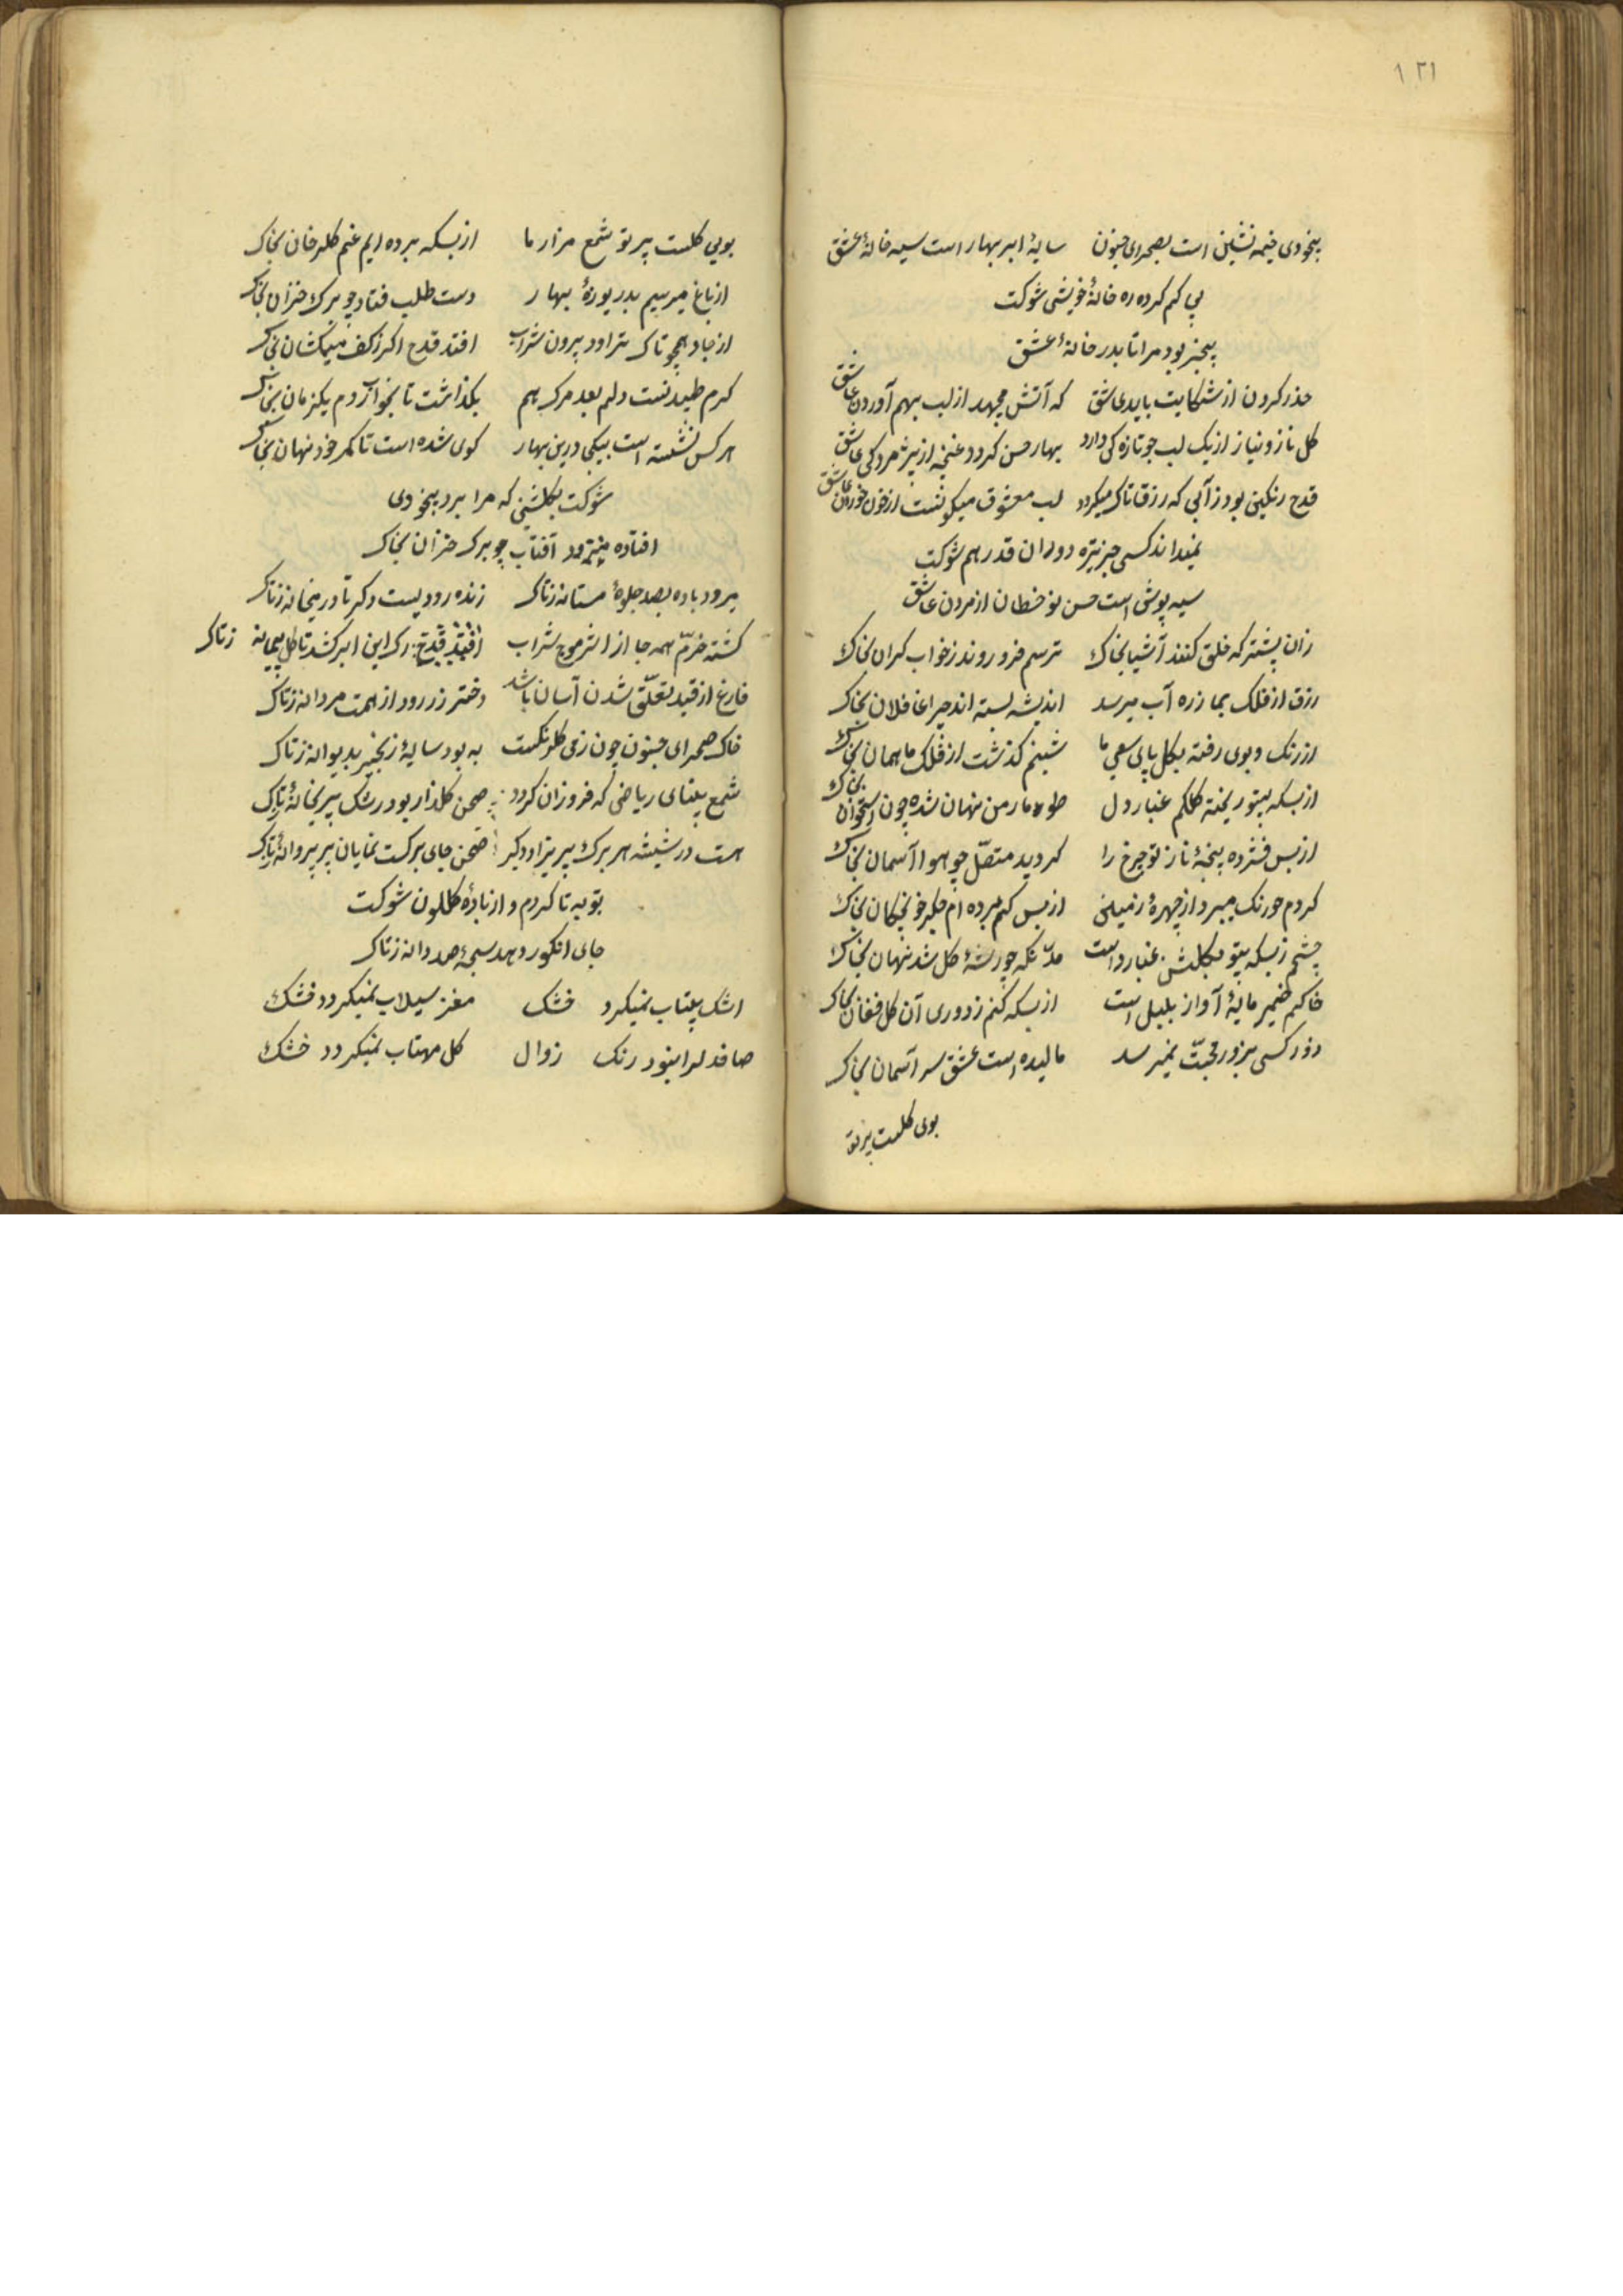 ۱۳۱
بیخودی خیمه نشین است بصحرای جنون سایهٔ ابر بهار است سیه خانهٔ عشق
پی کم کرده ره خانهٔ خویشی شوکت
بیخبر بود مرا تا بدر خانهٔ عشق
حذر کردن از شکایت باید ای عاشق که آتش میجهد از لب بهم آوردن عاشق
کل ناز و نیاز از یک لب جو تازه کی دارد بهار حسن کردد غنچه از پژمردکی عاشق
قدح رنکین بود ز آبی که رزق تاک میکردد لب معشوق میکونست از خون خوردن عاشق
نمیداند کسی جز تیره دوران قدر هم شوکت
سیه پوشی است حسن نو خطان از مردن عاشق
زان پیشتر که خلق کنند آشیا بخاک ترسم فرو روند ز خواب کران بخاک
رزق از فلک بما زره آب میرسد اندیشه بسته اند چرا غافلان بخاک
از رنک و بوی رفته بکل پای سعی ما شبنم کذشت از فلک ما همان بخاک
از بسکه بیتو ریخته کلکم غبار دل طومار من نهان شده چون استخوان بخاک
از بس فشرده پنجهٔ ناز تو چرخ را کردید متصل چو هوا آسمان بخاک
کردم چو رنک میپرد از چهرهٔ زمین از بس که برده ام جکر خونچکان بخاک
چشم ز بسکه بیتو بکلشن غبار داست مد نکه چو ریشهٔ کل شد نهان بخاک
خاکم خمیر مایهٔ آواز بلبل است از بسکه کنم ز دوری آن کل فغان بخاک
زور کسی بزور محبت نمیرسد مالیده است عشق سر آسمان بخاک
بوی کلست پرتو
بویی کلست پرتو شمع مزار ما از بسکه برده ایم غم کلرخان بخاک
از باغ میرسیم بدریوزهٔ بهار دست طلب فتاد چو برک خزان بخاک
از جا دهمچو تاک تراود برون شراب افتد قدح اکر ز کف میکشان بخاک
کرم طپیدنست دلم بعد مرک هم نکذاشت تا بخواب روم یکزمان بخاک
هر کس نشسته است بیکی درین بهار کوی شده است تا کمر خود نهان بخاک
شوکت بکلشنی که مرا برد بیخودی
افتاده میترود آفتاب چو برک خزان بخاک
میرود باده بصد جلوهٔ مستانه ز تاک زنده رودیست دکر تا در میخانه ز تاک
کشته خرم همه جا از اثر موج شراب افتد قدح رک این ابر کشد تا کل پیمانه ز تاک
فارغ از قید تعلق شدن آسان باشد دختر زر رود از همت مردانه ز تاک
خاک صحرای جنون چون زمی کلرنکست به بود سایهٔ زنجیر بدیوانه ز تاک
شمع بیتابی ریاضی که فروزان کردد صحن کلزار بود رشک پریخانهٔ تاک
هست در شیشه هر برک پریزاد دکر صحن جای برکست نمایان پر پروانهٔ تاک
توبه تا کردم و از بادهٔ کلکون شوکت
جای انکور دهد سبحهٔ صد دانه ز تاک
اشک بیتاب نمیکردد خشک مغز سیلاب نمیکردد خشک
صافدلرا نبود رنک زوال کل مهتاب نمیکردد خشک